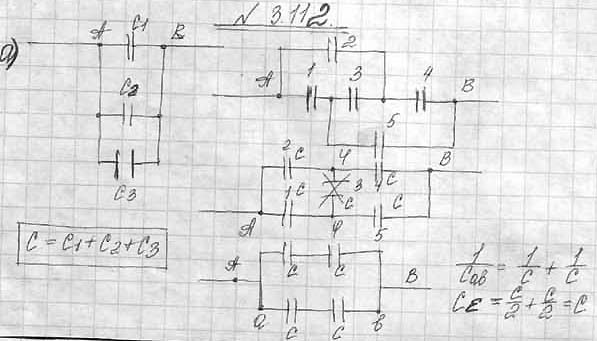 № 3.112.
а)
A C1 B
C2
C3
C = C1 + C2 + C3
2
A 1 3 4 B
5
2 C φ 4 C B
1 C 3 C
A φ 5 C
A C C B
a C C b
1/Cab = 1/C + 1/C
Cε = C/2 + C/2 = C